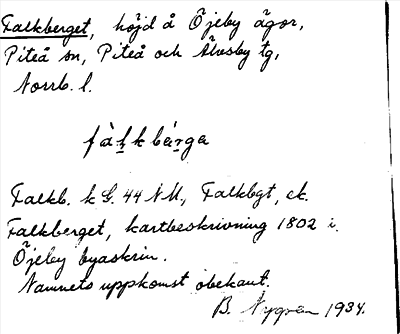 Falkberget, höjd å Öjeby ägor,
Piteå sn, Piteå och Älvsby tg,
Norrb. l.
fàḷkbárga
Falkb. k G. 44 NM., Falkbgt, ek.
Falkberget, kartbeskrivning 1802 i.
Öjeby byaskrin.
Namnets uppkomst obekant.
B. Nygren 1934.